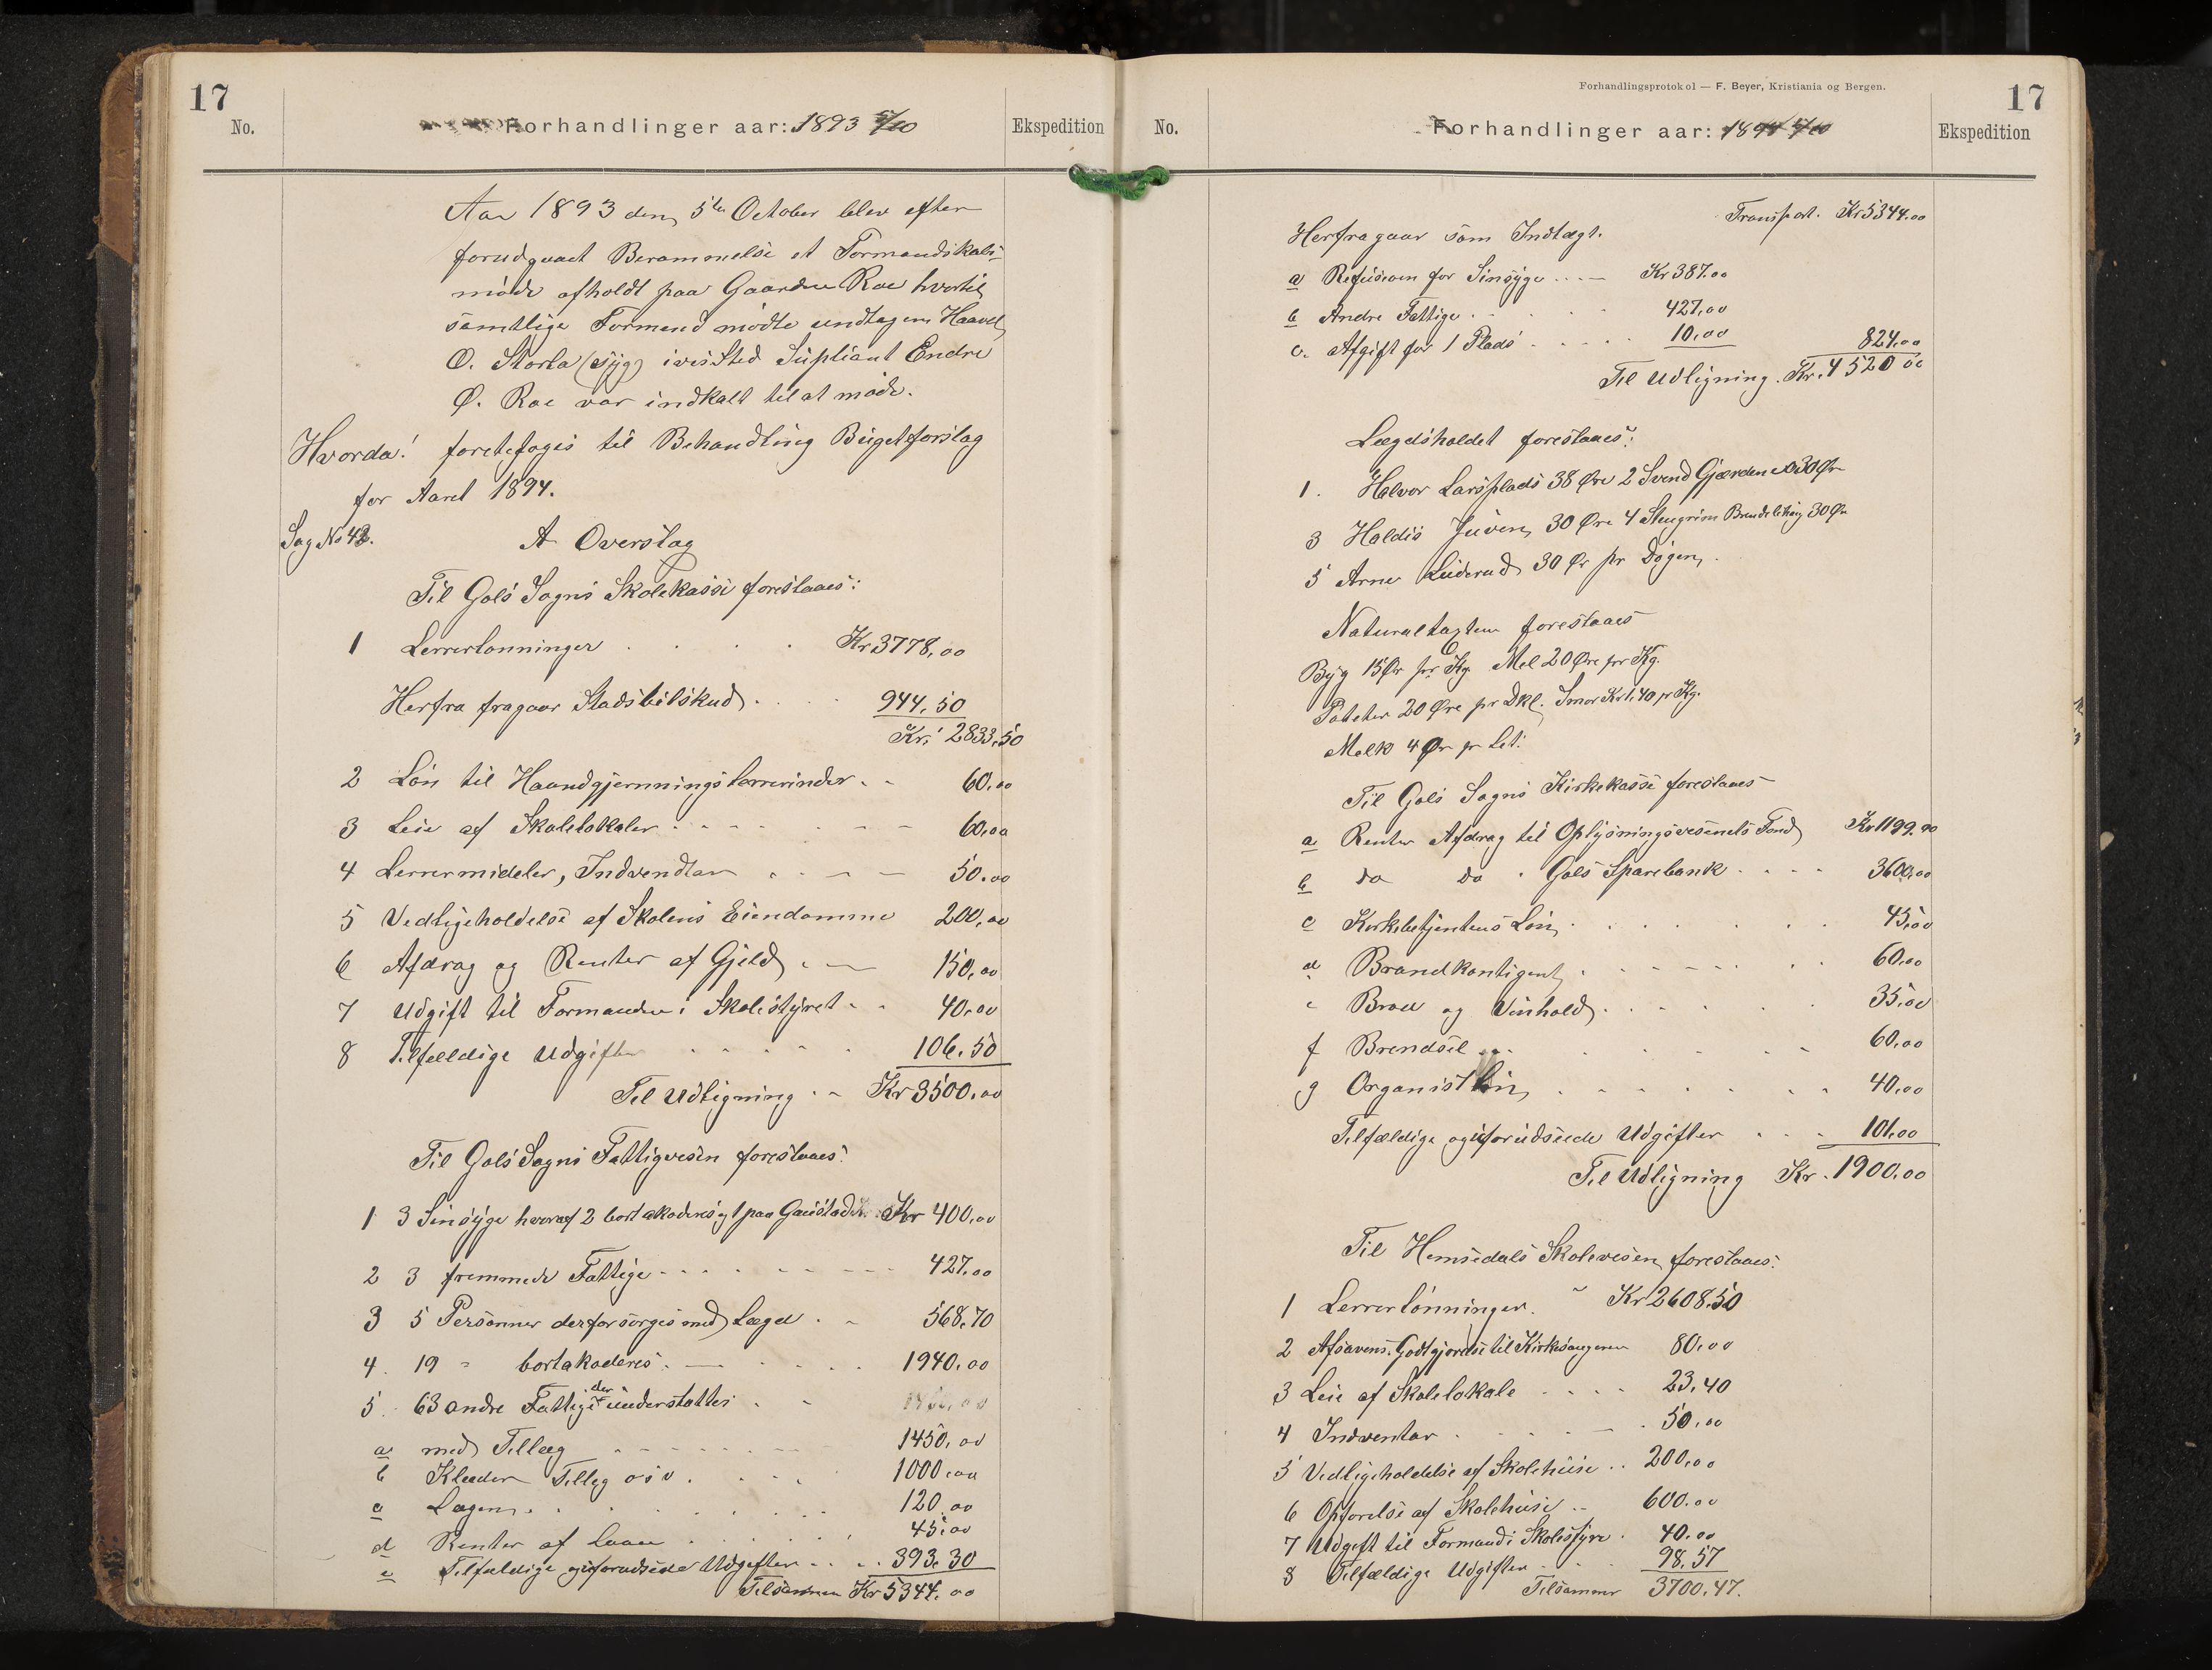 17
No.
Forhandlinger aar: 1893 5/10
Ekspedition
Aar 1893 den 5te October blev efter
forudgaaet Berammelse et Formandskabs-
møde afholdt paa Gaarden Roe hvortil
samtlige Formænd mødte undtagen Haavel
O. Storla (syg) i vis Sted Supliant Endre
Ø. Roe var indkalt til at møde.
Hvorda! foretoges til Behandling Bugetforslag
for Aaret 1894.
Sag No 42. A Overslag
Til Gols Sogns Skolekasse foreslaaes:
1 Lærerlønninger Kr 3778,00
Herfra fragaar Stadsbilskud 944,50
Kr. 2833,50
2 Løn til Haandgjerningslærerinder 60,00
3 Leie af Skolelokaler 60,00
4 Lærermideler, Indvendtar 50.00
5 Vedligeholdelse af Skolens Eiendomme 200,00
6 Afdrag og Renter af Gjeld 150,00
7 Udgift til Formanden i Skolestyret 40,00
8 Tilfældige Udgifter 106.50
Til Udligning Kr 3500,00
Til Gols Sogns Fattigvesen foreslaaes:
1 3 Sinsyge hvoraf 2 bortakoderes og 1 paa Gaustad Kr 400,00
2 3 fremmede Fattige 427,00
3 5 Personner der forsørges med Lægd 568,70
4. 19 " bortakoderes 1940,00
5. 63 andre Fattige der understøttes
a med Tillæg 1450,00
b Klæder Tillæg osv. 1000,00
c Lægen 120,00
d Renter af Laan 45,00
e Tilfældige og uforudseede Udgifter 393,30
Tilsammen Kr 5344,00
Forhandlingsprotokol — F. Beyer, Kristiania og Bergen.
17
No.
Forhandlinger aar: 1894 5/10
Ekspedition
Transport. Kr 5344.00
Herfra gaar som Indtægt.
a Refusioen for Sinsyge Kr 387.00
b Andre Fattige 427,00
c. Afgift for 1 Plads 10,00 824,00
Til Udligning Kr. 4520 00
Lægdsholdet foreslaaes:
1. Halvor Larsplads 38 Øre 2 Svend Gjærden 30 Ør
3 Haldis Juven 30 Øre 4 Stengrim Brendelihaug 30 Ør
5 Arne Luderud 30 Ør pr Døgen.
Naturaltaxten foreslaaes
Byg 15 Ør pr Kg. Mel 20 Øre pr Kg.
Poteter 20 Øre pr Dkl. Smør Kr 1,40 pr Kg.
Melk 4 Ør pr Lit.
Til Gols Sogns Kirkekasse foreslaaes
a Renter Afdrag til Oplysningsvesenets Fond Kr 1199.00
b do do " Gols Sparebank 360,00
c Kirkebetjentens Løn 45,00
d Brandkontigent 60,00
e Brød og Vinhold 35,00
f Brendsel 60,00
g Organist Løn 40,00
Tilfældige og uforudseede Udgifter 101,00
Til Udligning Kr. 1900,00
Til Hemsedals Skolevesen foreslaaes:
1 Lærerlønninger. Kr 2608.50
2 Afsavens Godtgjørelse til Kirkesangeren 80,00
3 Leie af Skolelokale 23,40
4 Indventar 50,00
5 Vedligeholdelse af Skolehuse 200,00
6 Opførelse af Skolehuse 600.00
7 Udgift til Formand i Skolestyre 40.00
8 Tilfældige Udgifter 98.57
Tilsammen 3700.47.